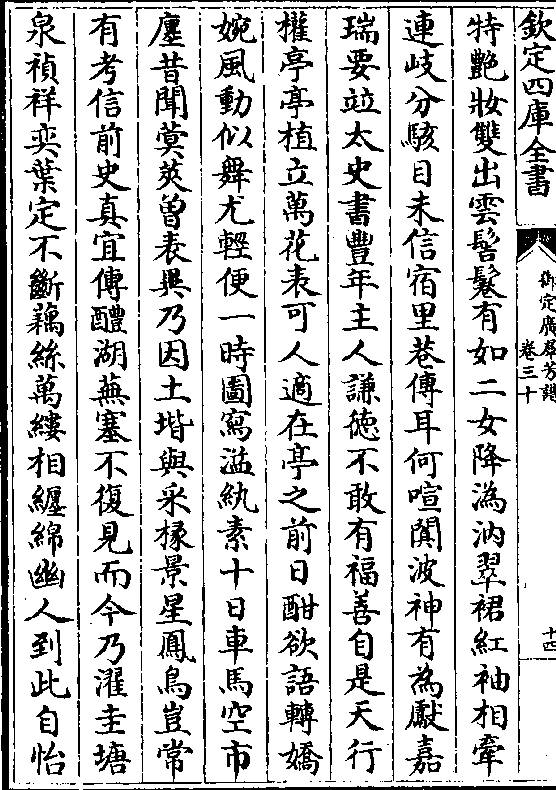 欽定四庫全書
御定廣羣芳譜
卷三十
十四
特艷妝雙出雲髻鬟有如二女降潙汭翠裙紅袖相牽
連岐分駭目未信宿里巷傳耳何喧闐波神有為獻嘉
瑞要竝太史書豐年主人謙徳不敢有福善自是天行
權亭亭植立萬花表可人適在亭之前日酣欲語轉嬌
婉風動似舞尤輕便一時圖寫溢紈素十日車馬空市
廛昔聞蓂莢曽表異乃因土堦與采椽景星鳳鳥豈常
有考信前史真宜傳醴湖蕪塞不復見而今乃濯圭塘
泉禎祥奕葉定不斷藕絲萬縷相纒綿幽人到此自怡